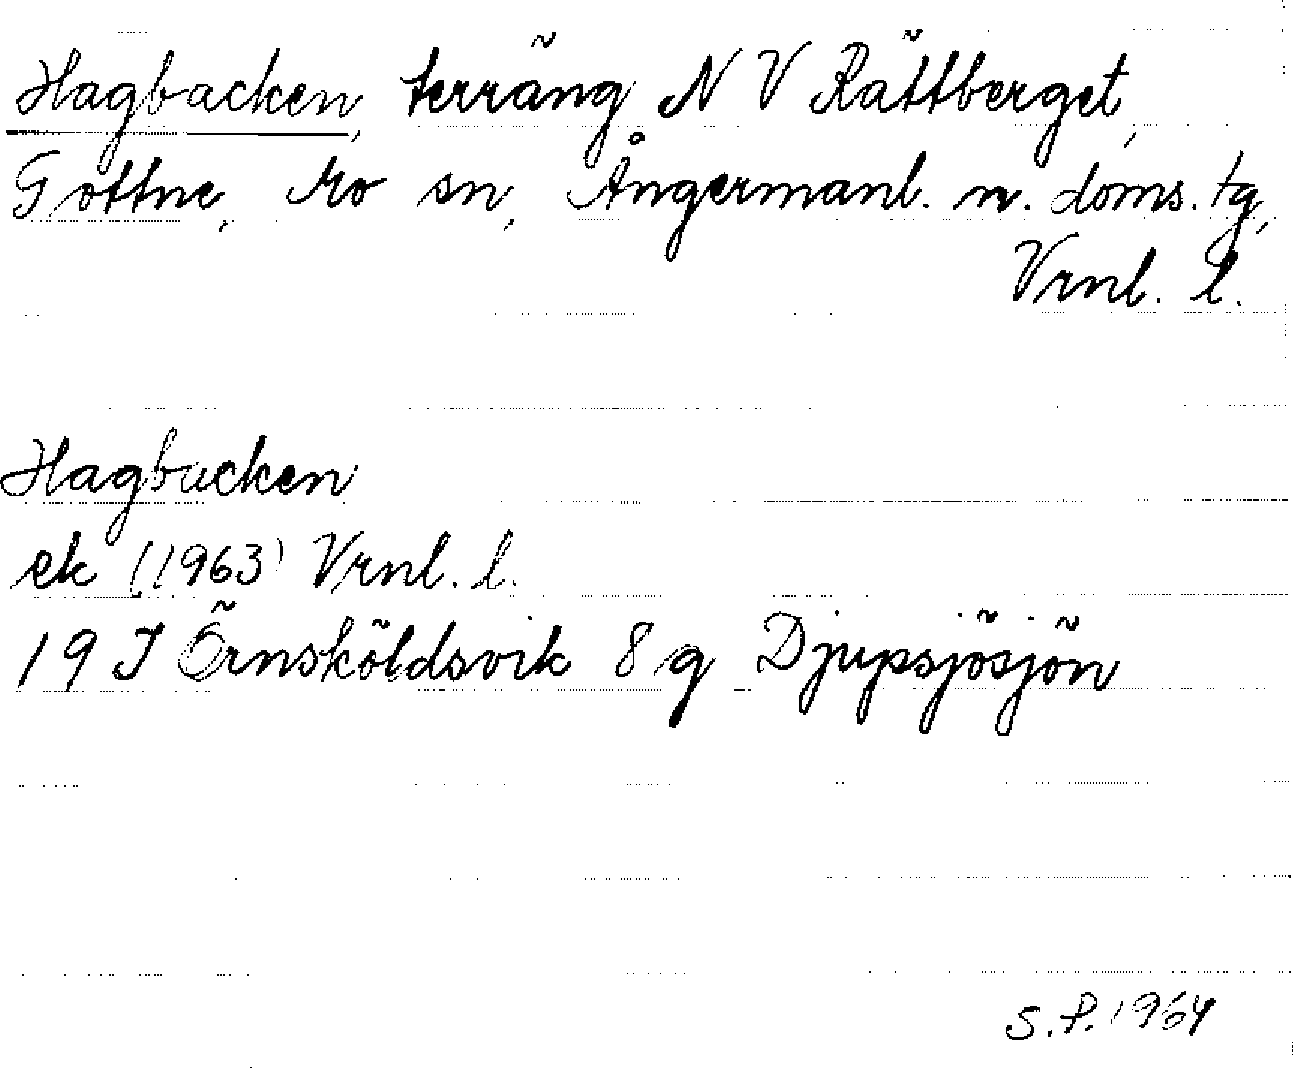 Hagbacken, terräng N V Rättberget,
Gottne, Mo sn, Ångermanl. n. doms. tg,
Vrnl. l.
Hagbacken
ek (1963) Vrnl. l.
19 J Örnsköldsvik 8 g Djupsjösjön
S.P. 1964